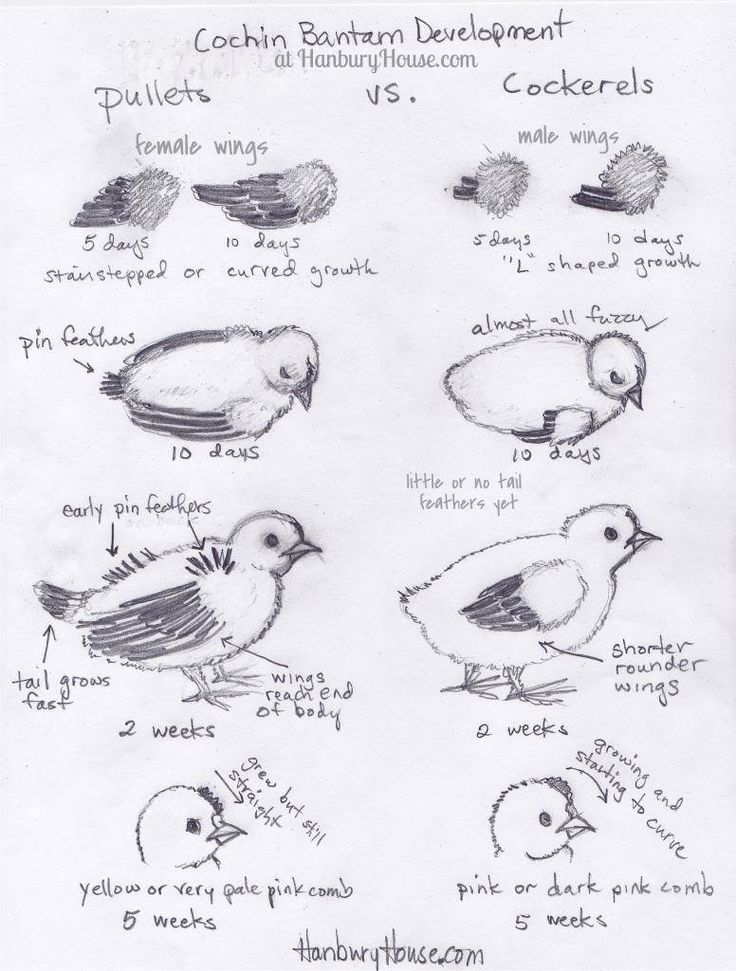 Cochin Bantam Development
at HanburyHouse.com
pullets vs. Cockerels
female wings
male wings
5 days
10 days
5 days
10 days
stairstepped or curved growth
"L" shaped growth
pin feathers
almost all fuzzy
10 days
10 days
little or no tail
feathers yet
early pin feathers
tail grows
fast
wings
reach end
of body
shorter
rounder
wings
2 weeks
2 weeks
grew but still
straight
growing and
starting to curve
yellow or very pale pink comb
5 weeks
pink or dark pink comb
5 weeks
HanburyHouse.com